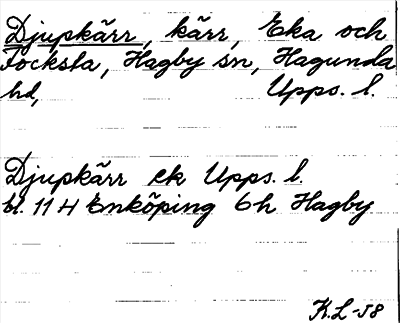 Djupkärr, kärr, Eka och
Focksta, Hagby sn, Hagunda
hd, Upps. l.
Djupkärr ek Upps. l.
bl. 114 Enköping 6h Hagby
K.L-58